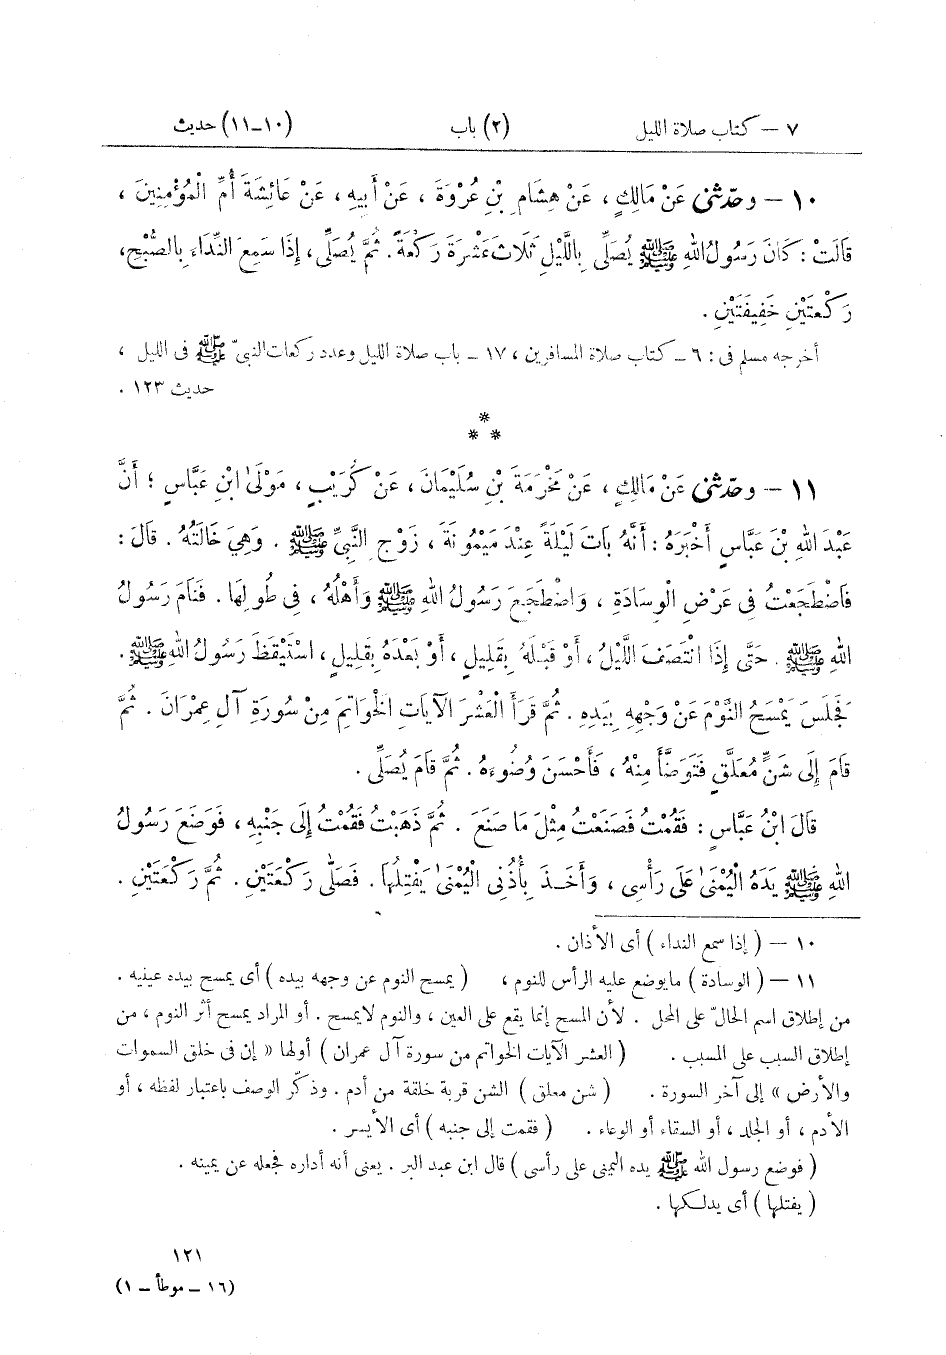 ٧ – كتاب صلاة الليل (٢) باب (١٠–١١) حديث
١٠ – وحدّثنى عَنْ مَالِكٍ ، عَنْ هِشَامِ بْنِ عُرْوَةَ ، عَنْ أَبِيهِ ، عَنْ عَائِشَةَ أُمِّ الْمُؤْمِنِينَ ،
قَالَتْ : كَانَ رَسُولُ اللهِ ﷺ يُصَلِّى بِاللَّيْلِ ثَلَاثَ عَشْرَةَ رَكْعَةً . ثُمَّ يُصَلِّى ، إِذَا سَمِعَ النِّدَاءَ بِالصُّبْحِ،
رَكْعَتَيْنِ خَفِيفَتَيْنِ .
أخرجه مسلم فى : ٦ – كتاب صلاة المسافرين ، ١٧ – باب صلاة الليل وعدد ركعات النبىّ ﷺ فى الليل ،
حديث ١٢٣ .
*
* *
١١ – وحدّثنى عَنْ مَالِكٍ ، عَنْ مَخْرَمَةَ بْنِ سُلَيْمَانَ ، عَنْ كُرَيْبٍ ، مَوْلَى ابْنِ عَبَّاسٍ ؛ أَنَّ
عَبْدَ اللهِ بْنَ عَبَّاسٍ أَخْبَرَهُ : أَنَّهُ بَاتَ لَيْلَةً عِنْدَ مَيْمُونَةَ ، زَوْجِ النَّبِىِّ ﷺ . وَهِىَ خَالَتُهُ . قَالَ :
فَاضْطَجَعْتُ فِى عَرْضِ الْوِسَادَةِ ، وَاضْطَجَعَ رَسُولُ اللهِ ﷺ وَأَهْلُهُ ، فِى طُولِهَا . فَنَامَ رَسُولُ
اللهِ ﷺ . حَتَّى إِذَا انْتَصَفَ اللَّيْلُ ، أَوْ قَبْلَهُ بِقَلِيلٍ ، أَوْ بَعْدَهُ بِقَلِيلٍ ، اسْتَيْقَظَ رَسُولُ اللهِ ﷺ .
فَجَلَسَ يَمْسَحُ النَّوْمَ عَنْ وَجْهِهِ بِيَدِهِ . ثُمَّ قَرَأَ الْعَشْرَ الْآيَاتِ الْخَوَاتِمَ مِنْ سُورَةِ آلِ عِمْرَانَ . ثُمَّ
قَامَ إِلَى شَنٍّ مُعَلَّقٍ فَتَوَضَّأَ مِنْهُ ، فَأَحْسَنَ وُضُوءَهُ . ثُمَّ قَامَ يُصَلِّى .
قَالَ ابْنُ عَبَّاسٍ : فَقُمْتُ فَصَنَعْتُ مِثْلَ مَا صَنَعَ . ثُمَّ ذَهَبْتُ فَقُمْتُ إِلَى جَنْبِهِ ، فَوَضَعَ رَسُولُ
اللهِ ﷺ يَدَهُ الْيُمْنَى عَلَى رَأْسِى ، وَأَخَذَ بِأُذُنِى الْيُمْنَى يَفْتِلُهَا . فَصَلَّى رَكْعَتَيْنِ . ثُمَّ رَكْعَتَيْنِ .
١٠ – ( إذا سمع النداء ) أى الأذان .
١١ – ( الوسادة ) مايوضع عليه الرأس للنوم ، ( يمسح النوم عن وجهه بيده ) أى يمسح بيده عينيه .
من إطلاق اسم الحالّ على المحل . لأن المسح إنما يقع على العين ، والنوم لايمسح . أو المراد يمسح أثر النوم ، من
إطلاق السبب على المسبب . ( العشر الآيات الخواتم من سورة آل عمران ) أولها « إن فى خلق السموات
والأرض » إلى آخر السورة . ( شن معلق ) الشن قربة خلقة من أدم . وذكّر الوصف باعتبار لفظه ، أو
الأدم ، أو الجلد ، أو السقاء أو الوعاء . ( فقمت إلى جنبه ) أى الأيسر .
( فوضع رسول الله ﷺ يده اليمنى على رأسى ) قال ابن عبد البر . يعنى أنه أداره فجعله عن يمينه .
( يفتلها ) أى يدلكها .
١٢١
(١٦ – موطأ – ١)